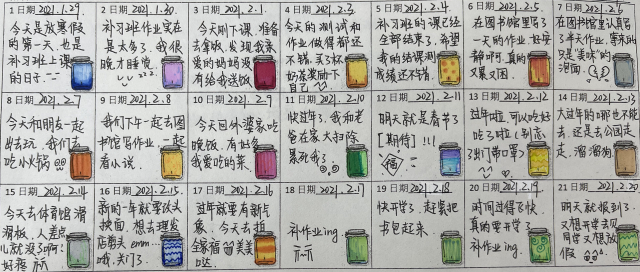 1 日期 2021.1.29
今天是放寒假
的第一天,也是
补习班上课
的日子.
2 日期 2021.1.30
补习班作业实在
是太多了.我很
晚才睡觉.
zzz
3 日期 2021.2.1
今天刚下课,准备
去拿饭,发现我亲
爱的妈妈没
有给我送饭
4 日期 2021.2.3
今天的测试和
作业做得都还
不错,买了杯
好茶奖励下
自己
5 日期 2021.2.4
补习班的课已经
全部结束了,希望
我的结课测试
成绩还不错.
6 日期 2021.2.5
在图书馆里写了
一天的作业.好安
静啊.真的
又累又困.
7 日期 2021.2.6
在图书馆里认真写
了半天作业,奢求的
只是"美味"的
泡面.
8 日期 2021.2.7
今天和朋友一起
出去玩,我们去
吃小火锅
9 日期 2021.2.8
我们下午一起去图
书馆写作业,一起
看小说.
10 日期 2021.2.9
今天回外婆家吃
晚饭.有好多
我爱吃的菜.
11 日期 2021.2.10
快过年了,我和老
爸在家大扫除
累死我了.
12 日期 2021.2.11
明天就是春节了
[期待]!!!
福
13 日期 2021.2.12
过年啦.可以吃好
吃了啦(别忘
了出门带口罩)
14 日期 2021.2.13
大过年的哪也不能
去.还是去公园走
走.溜溜狗
15 日期 2021.2.14
今天去体育馆滑
滑板,人差点
儿就没了啊!
好疼
16 日期 2021.2.15
新的一年就要改头
换面.想去理发
店剪头emm...
哦,关门了.
17 日期 2021.2.16
过年就要有新气
象.今天去拍
全家福 美美
哒.
18 日期 2021.2.17
补作业ing
19 日期 2021.2.18
快开学了.赶紧把
书包起来.
20 日期 2021.2.19
时间过得飞快.
真的要开学了.
补作业ing.
21 日期 2021.2.20
明天就报到了.
又想开学去见
同学又想放
假